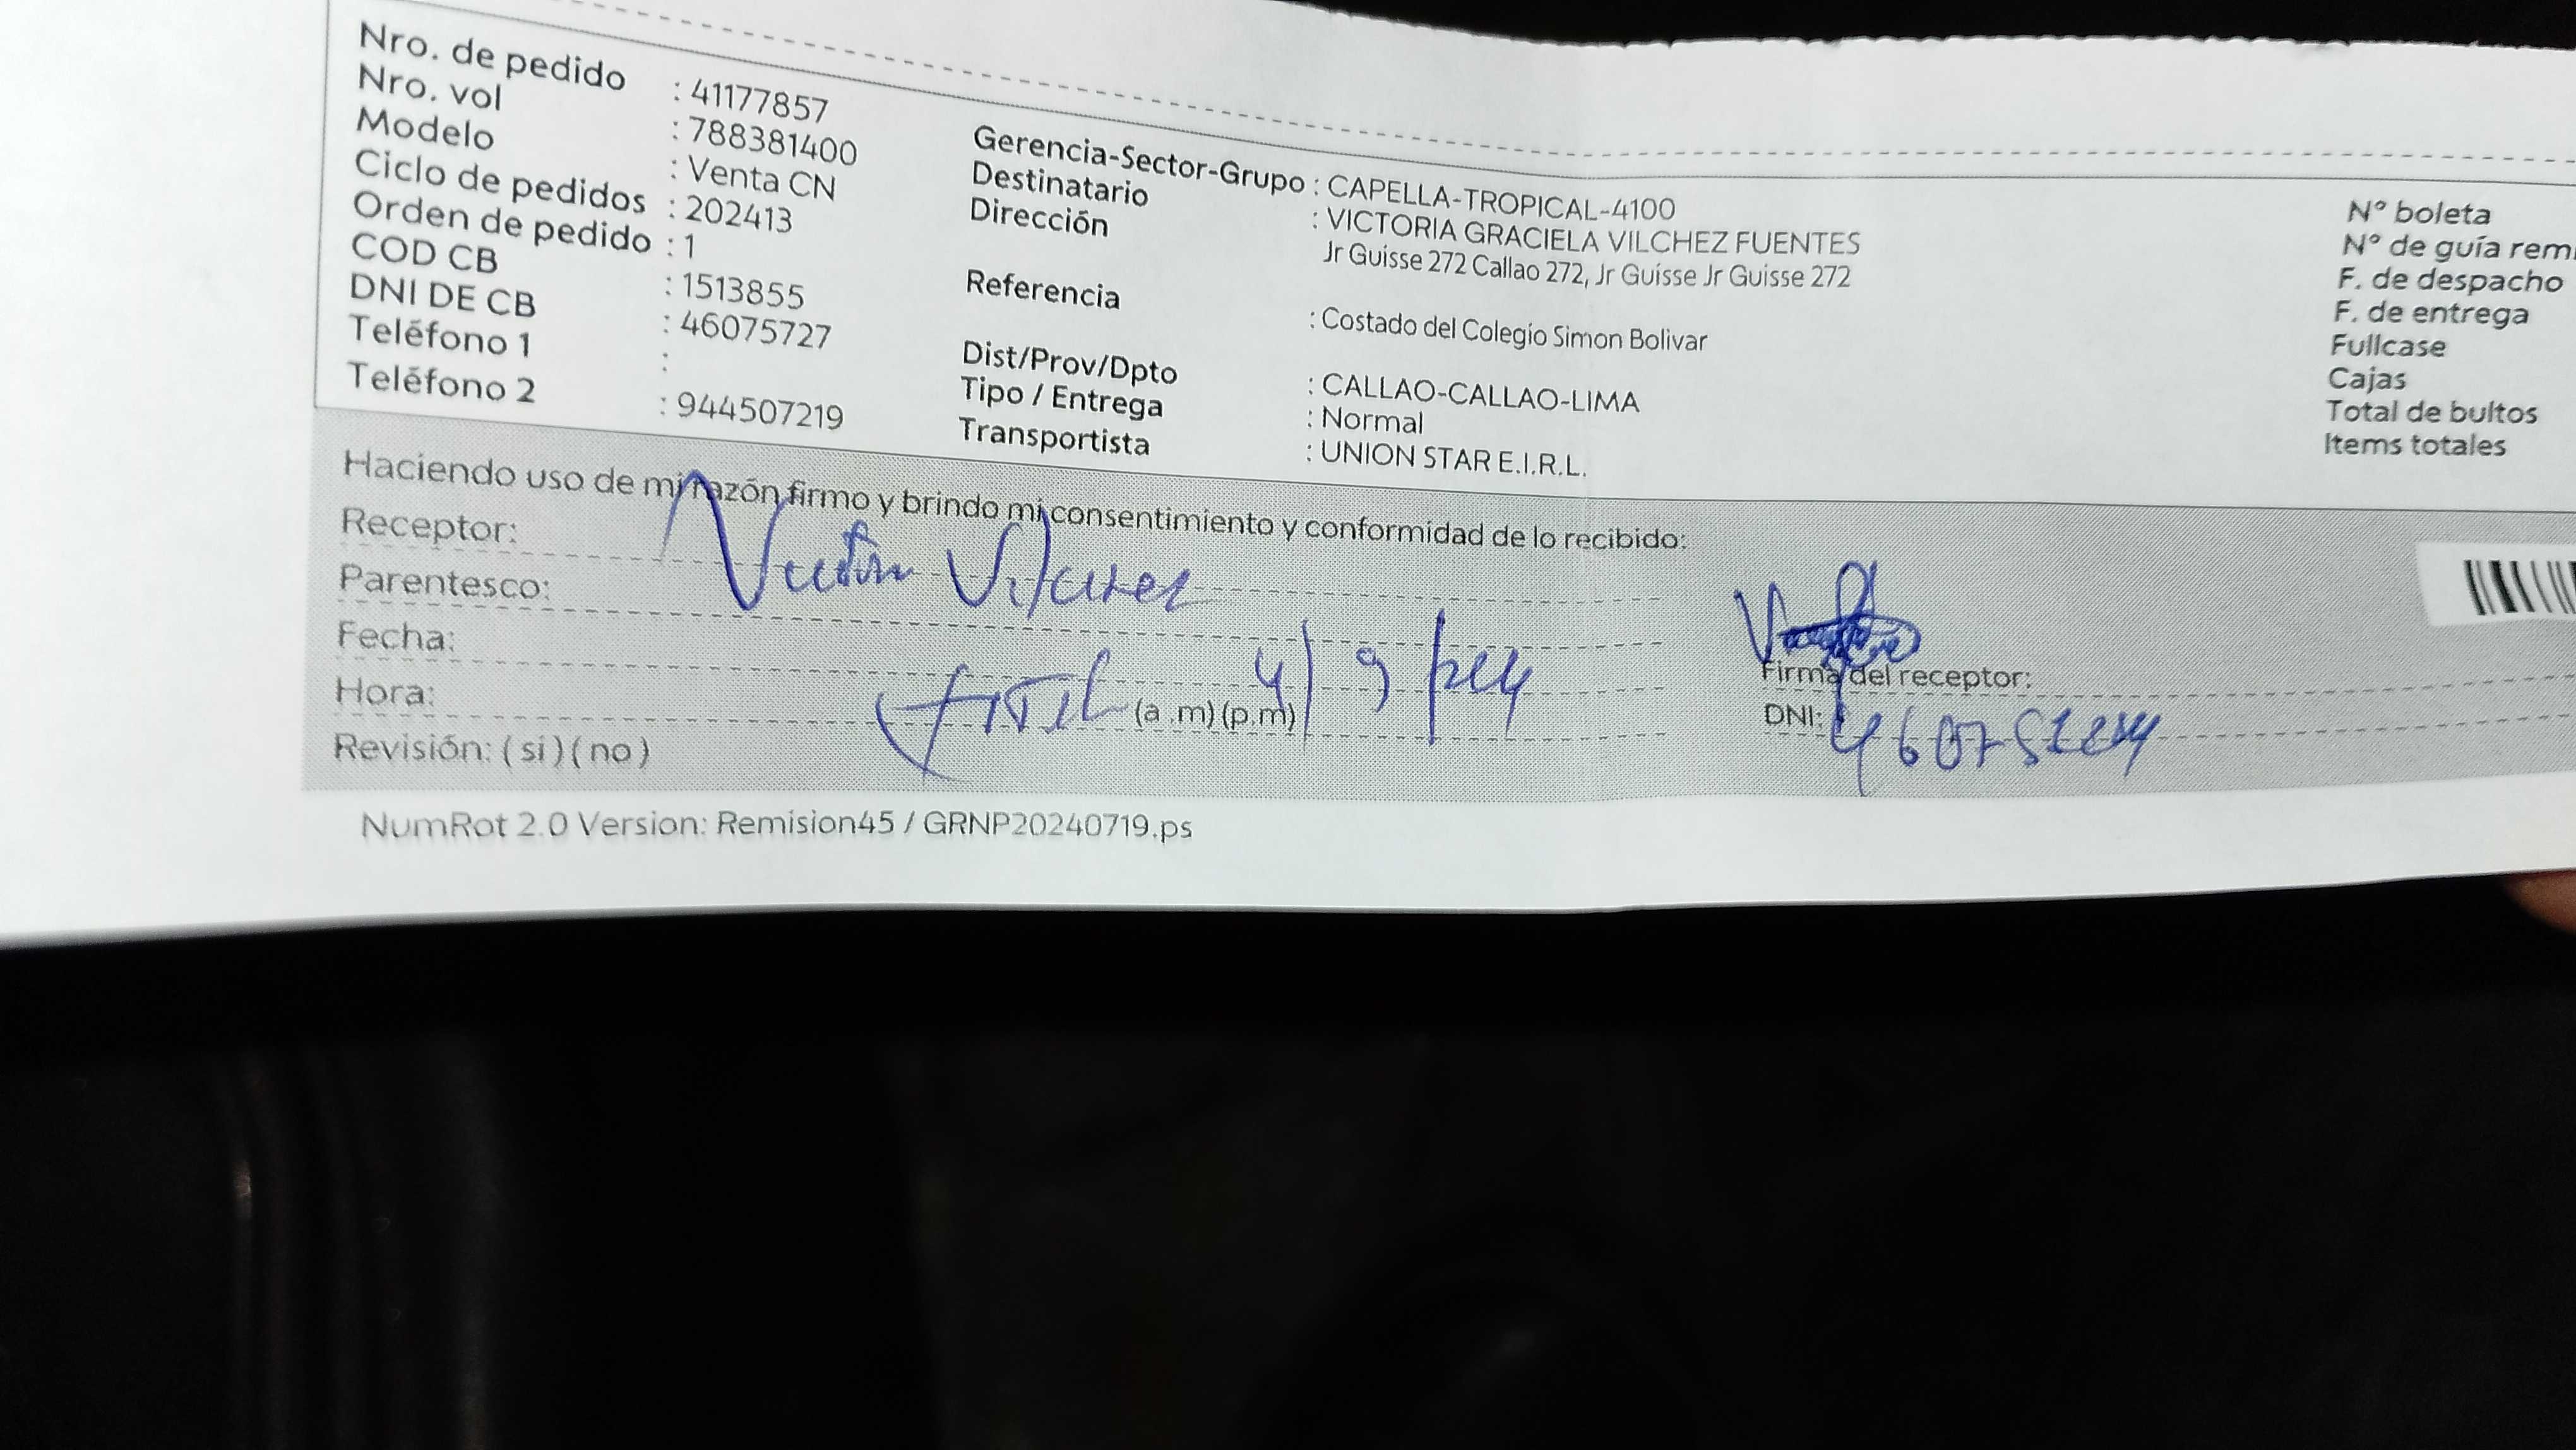 Nro. de pedido : 41177857
Nro. vol : 788381400
Modelo : Venta CN
Ciclo de pedidos : 202413
Orden de pedido : 1
COD CB : 1513855
DNI DE CB : 46075727
Teléfono 1 :
Teléfono 2 : 944507219
Gerencia-Sector-Grupo : CAPELLA-TROPICAL-4100
Destinatario : VICTORIA GRACIELA VILCHEZ FUENTES
Dirección Jr Guisse 272 Callao 272, Jr Guisse Jr Guisse 272
Referencia : Costado del Colegio Simon Bolivar
Dist/Prov/Dpto : CALLAO-CALLAO-LIMA
Tipo / Entrega : Normal
Transportista : UNION STAR E.I.R.L.
N° boleta
N° de guía remi
F. de despacho
F. de entrega
Fullcase
Cajas
Total de bultos
Items totales
Haciendo uso de mi razón firmo y brindo mi consentimiento y conformidad de lo recibido:
Receptor:
Parentesco: Vilchez
Fecha:
Hora: (a .m) (p.m)
Revisión: ( si ) ( no )
Firma del receptor:
DNI:
NumRot 2.0 Version: Remision45 / GRNP20240719.ps